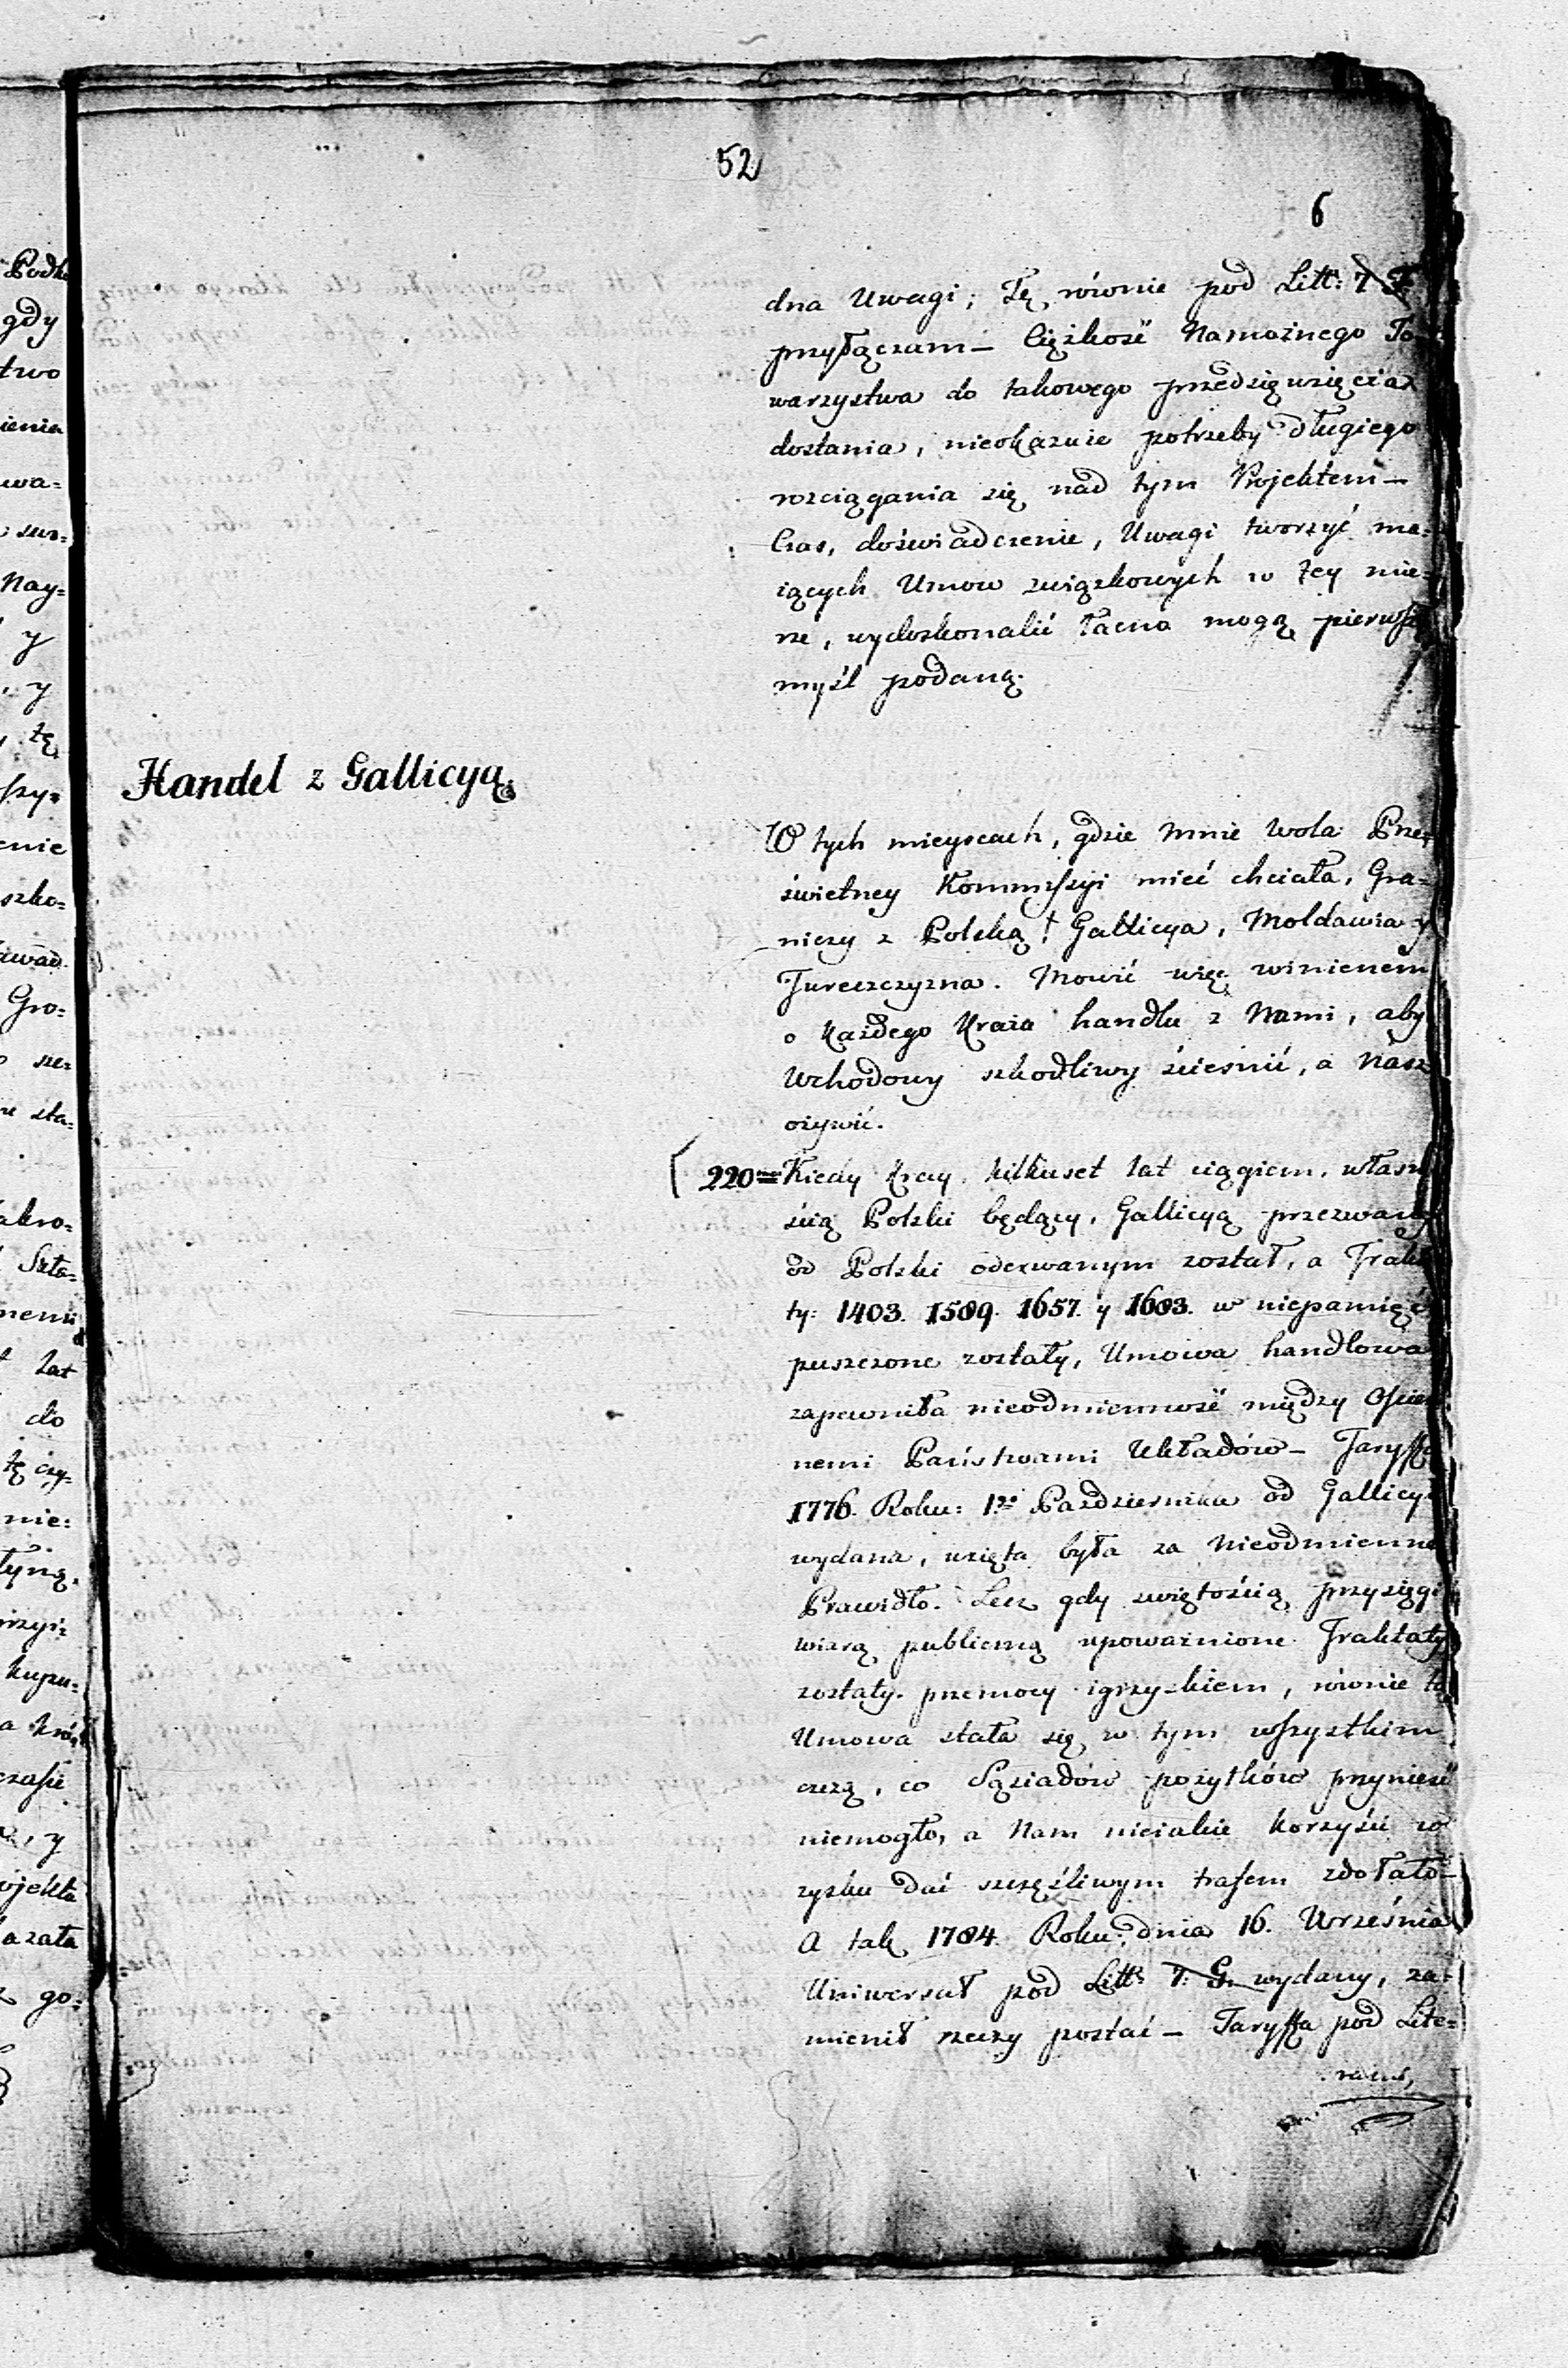 52
6
dna Uwagi; Tę równie pod Litt: F
przyłączam – Ciężkość Namożnego To-
warzystwa do takowego przedsięwzięcia
dostania, nieokazuie potrzeby długiego
rozciągania się nad tym Projektem –
Czas, doświadczenie, Uwagi tworzyć ma=
iących Umow związkowych w tey mie=
rze, wydoskonalić łacno mogą pierwszą
myśl podaną.
Handel z Gallicyą.
W tych mieyscach, gdzie mnie wola Prze=
świetney Kommissyi mieć chciała, Gra=
niczy z Polską! Gallicya, Moldawia y
Turecczyzna. Mowić więc winienem
o każdego Kraiu handlu z Nami, aby
Wchodowy szkodliwy ścieśnić, a Nasz
ożywić.
220= Kiedy Kray kilkuset lat ciągiem, własno
ścią Polski będący, Gallicyą przezwany
od Polski oderwanym został, a Trakta
ty: 1403. 1589. 1657. y 1683. w niepamięć
puszczone zostały, Umowa handlowa
zapewniła nieodmienność między Ościen
nemi Państwami Układów – Taryffa
1776. Roku: 1go Pazdziernika od Gallicyi
wydana, wzięta była za Nieodmienne
Prawidło. Lecz gdy świętością przysięgi
wiarą publiczną upoważnione Traktaty
zostały przemocy igrzyskiem, równie ta
Umowa stała się w tym wszystkim
czczą, co Sąsiadów pożytków przynieść
niemogło, a Nam nieiakie korzyści w
zysku dać szczęśliwym trafem zdołało –
A tak 1784. Roku: dnia 16. Września
Uniwersał pod Litt: G. wydany, za=
mienił rzeczy postać – Taryffa pod Lite=
rami,
Podk
gdy
two
ienia
wa=
Nay=
y
y
tę
szy=
enie
szko=
Gro=
sze=
sta=
akro=
Szta=
lat
do
tę czy=
mie=
przyi=
kupu=
czasie
y
ojekta
azała
go=